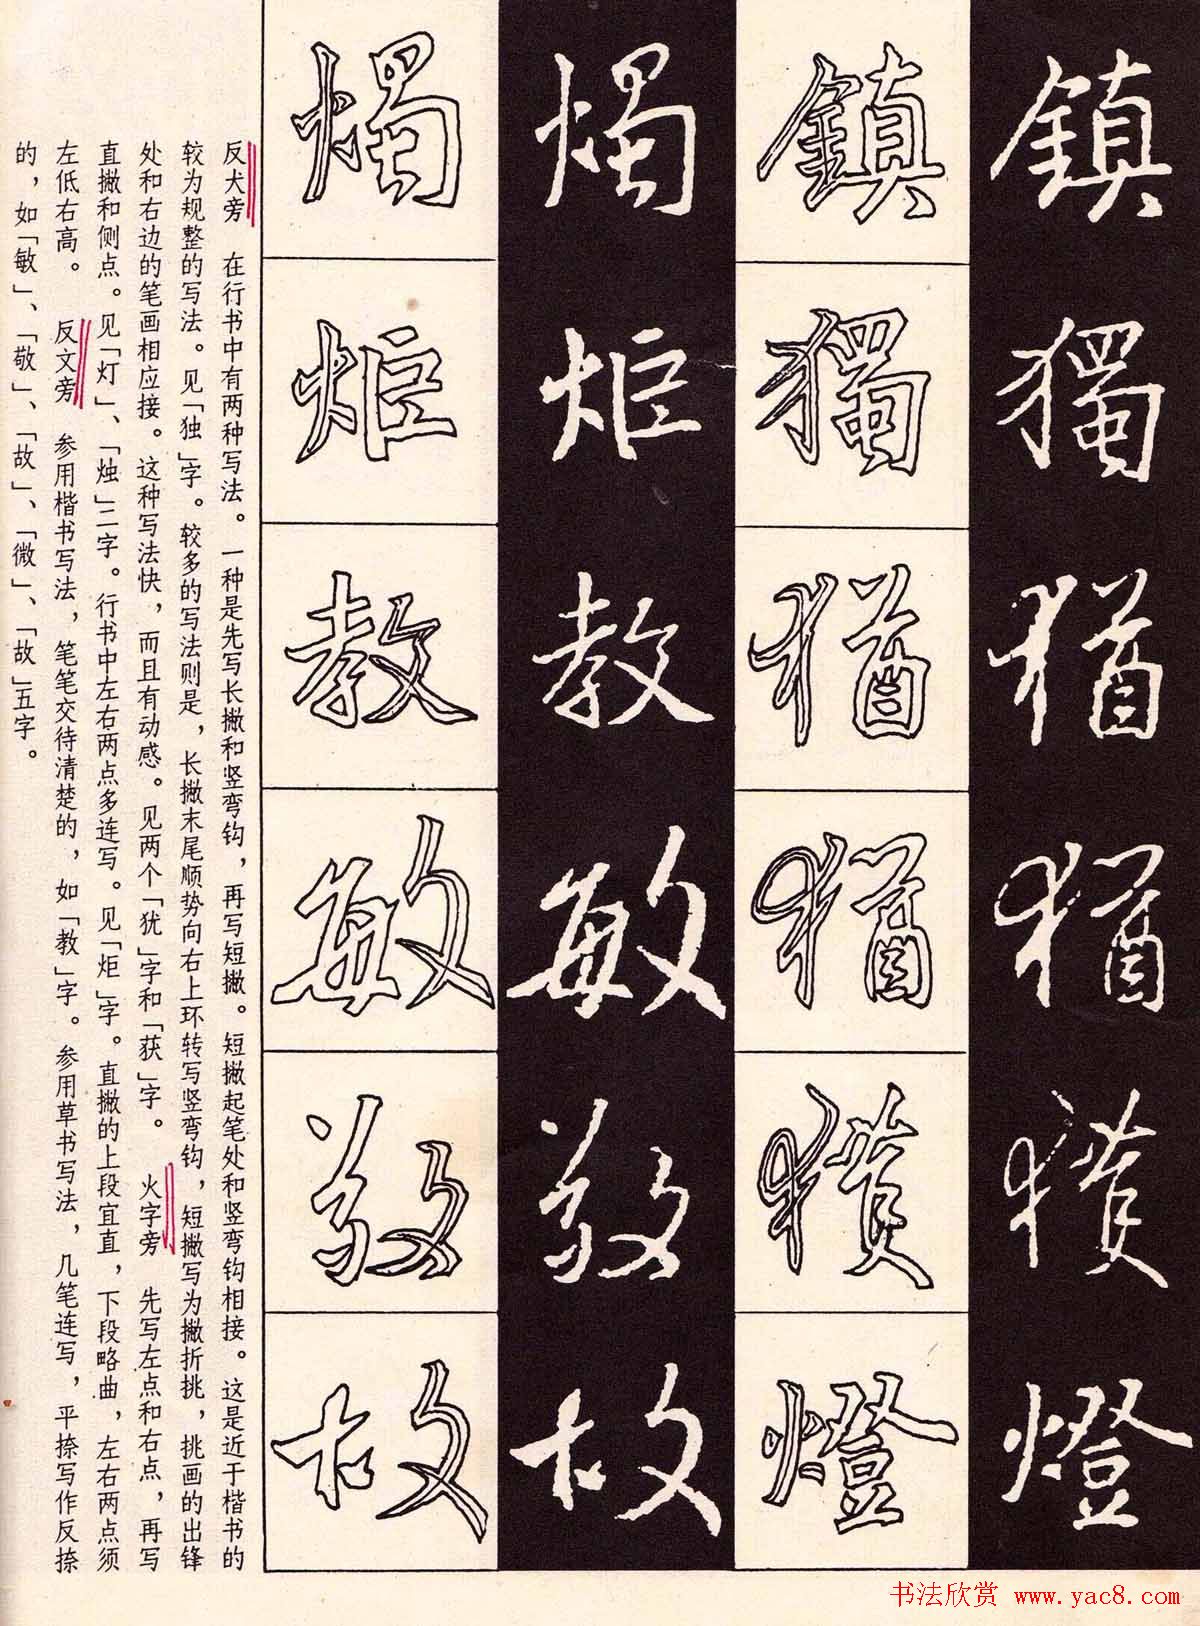 鎮獨猶猶獲燈
鎮獨猶猶獲燈
燭炬教敏敬故
燭炬教敏敬故
反犬旁　在行书中有两种写法。一种是先写长撇和竖弯钩，再写短撇。短撇起笔处和竖弯钩相接。这是近于楷书的
较为规整的写法。见「独」字。较多的写法则是，长撇末尾顺势向右上环转写竖弯钩，短撇写为撇折挑，挑画的出锋
处和右边的笔画相应接。这种写法快，而且有动感。见两个「犹」字和「获」字。　火字旁　先写左点和右点，再写
直撇和侧点。见「灯」、「烛」二字。行书中左右两点多连写。见「炬」字。直撇的上段宜直，下段略曲，左右两点须
左低右高。　反文旁　参用楷书写法，笔笔交待清楚的，如「教」字。参用草书写法，几笔连写，平捺写作反捺
的，如「敏」、「敬」、「故」、「微」、「故」五字。
书法欣赏 www.yac8.com